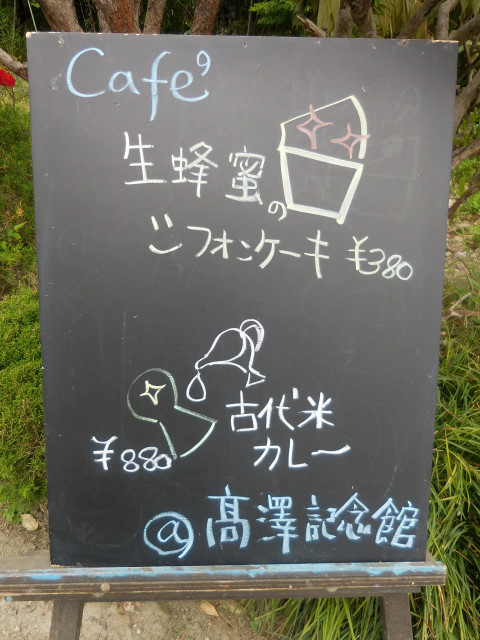 Cafe
生蜂蜜の
シフォンケーキ ¥380
古代米
カレー
¥880
@髙澤記念館